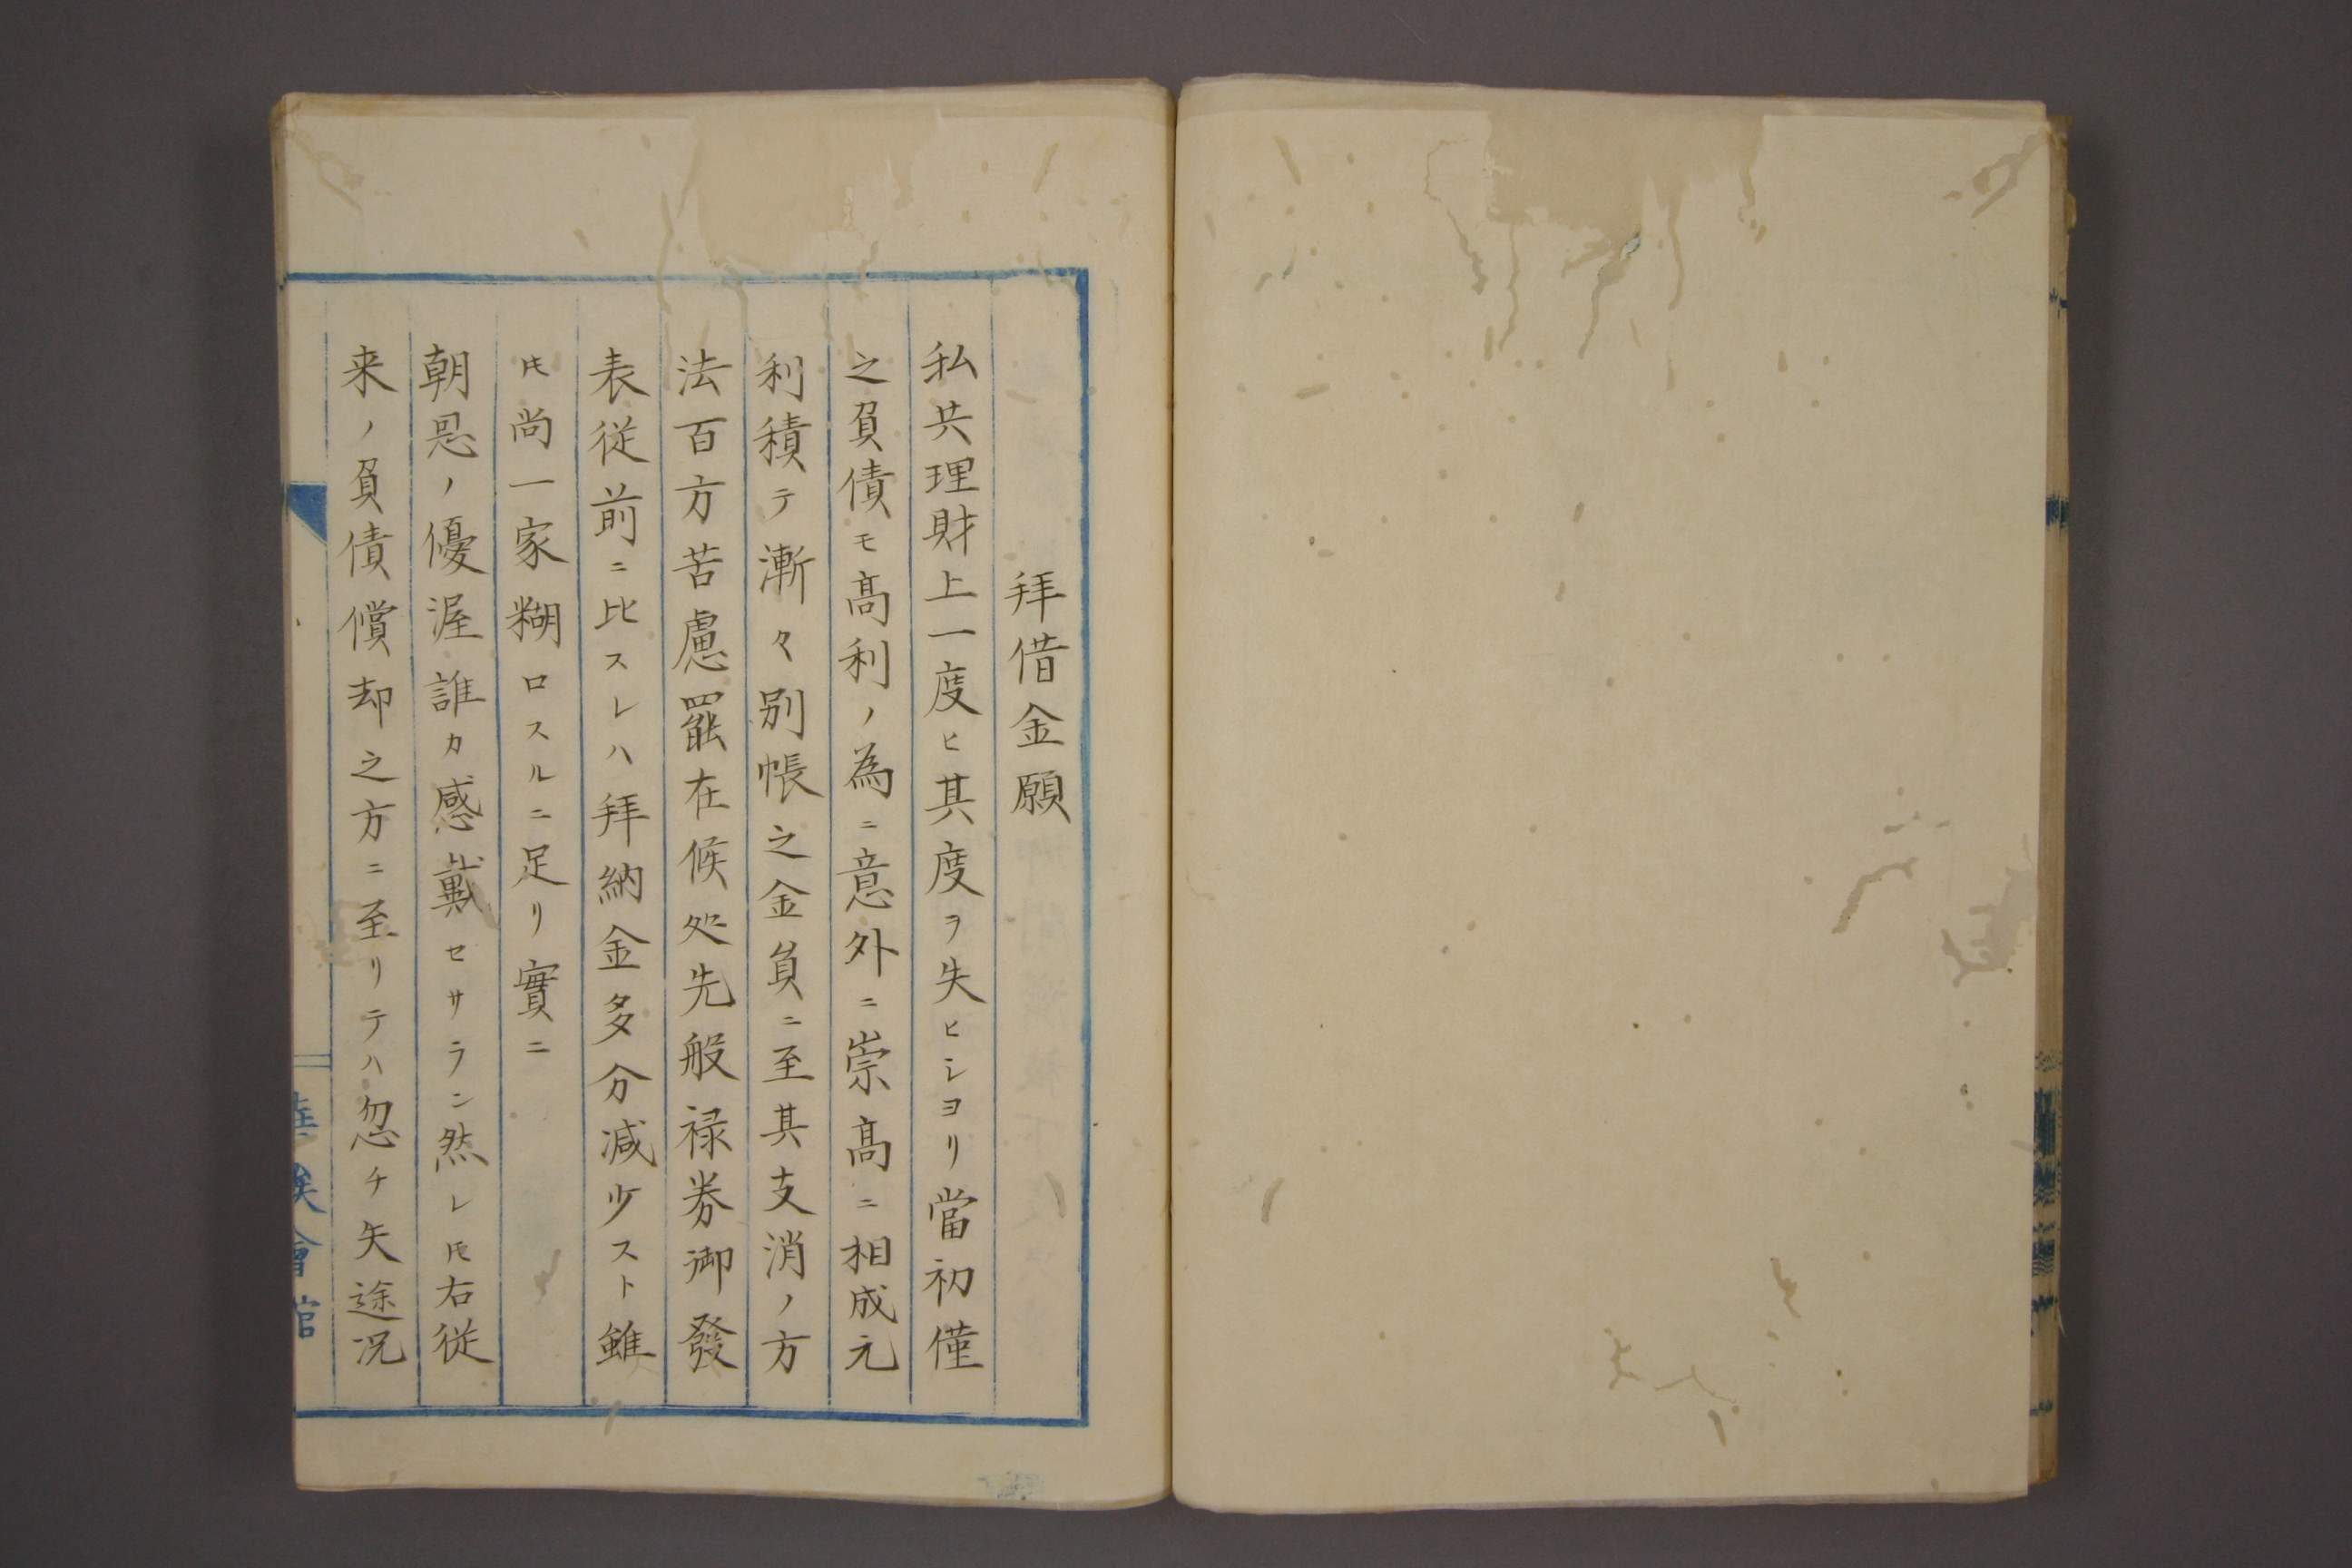 拜借金願
私共理財上一度ヒ其度ヲ失ヒシヨリ當初僅
之負債モ髙利ノ為ニ意外ニ崇髙ニ相成元
利積テ漸々別帳之金員ニ至其支消ノ方
法百方苦慮罷在候処先般禄券御發
表従前ニ比スレハ拜納金多分減少スト雖
㪽尚一家糊口スルニ足リ實ニ
朝恩ノ優渥誰カ感戴セサラン然レ𪜈右従
来ノ負債償却之方ニ至リテハ忽チ矢途况
華族會館